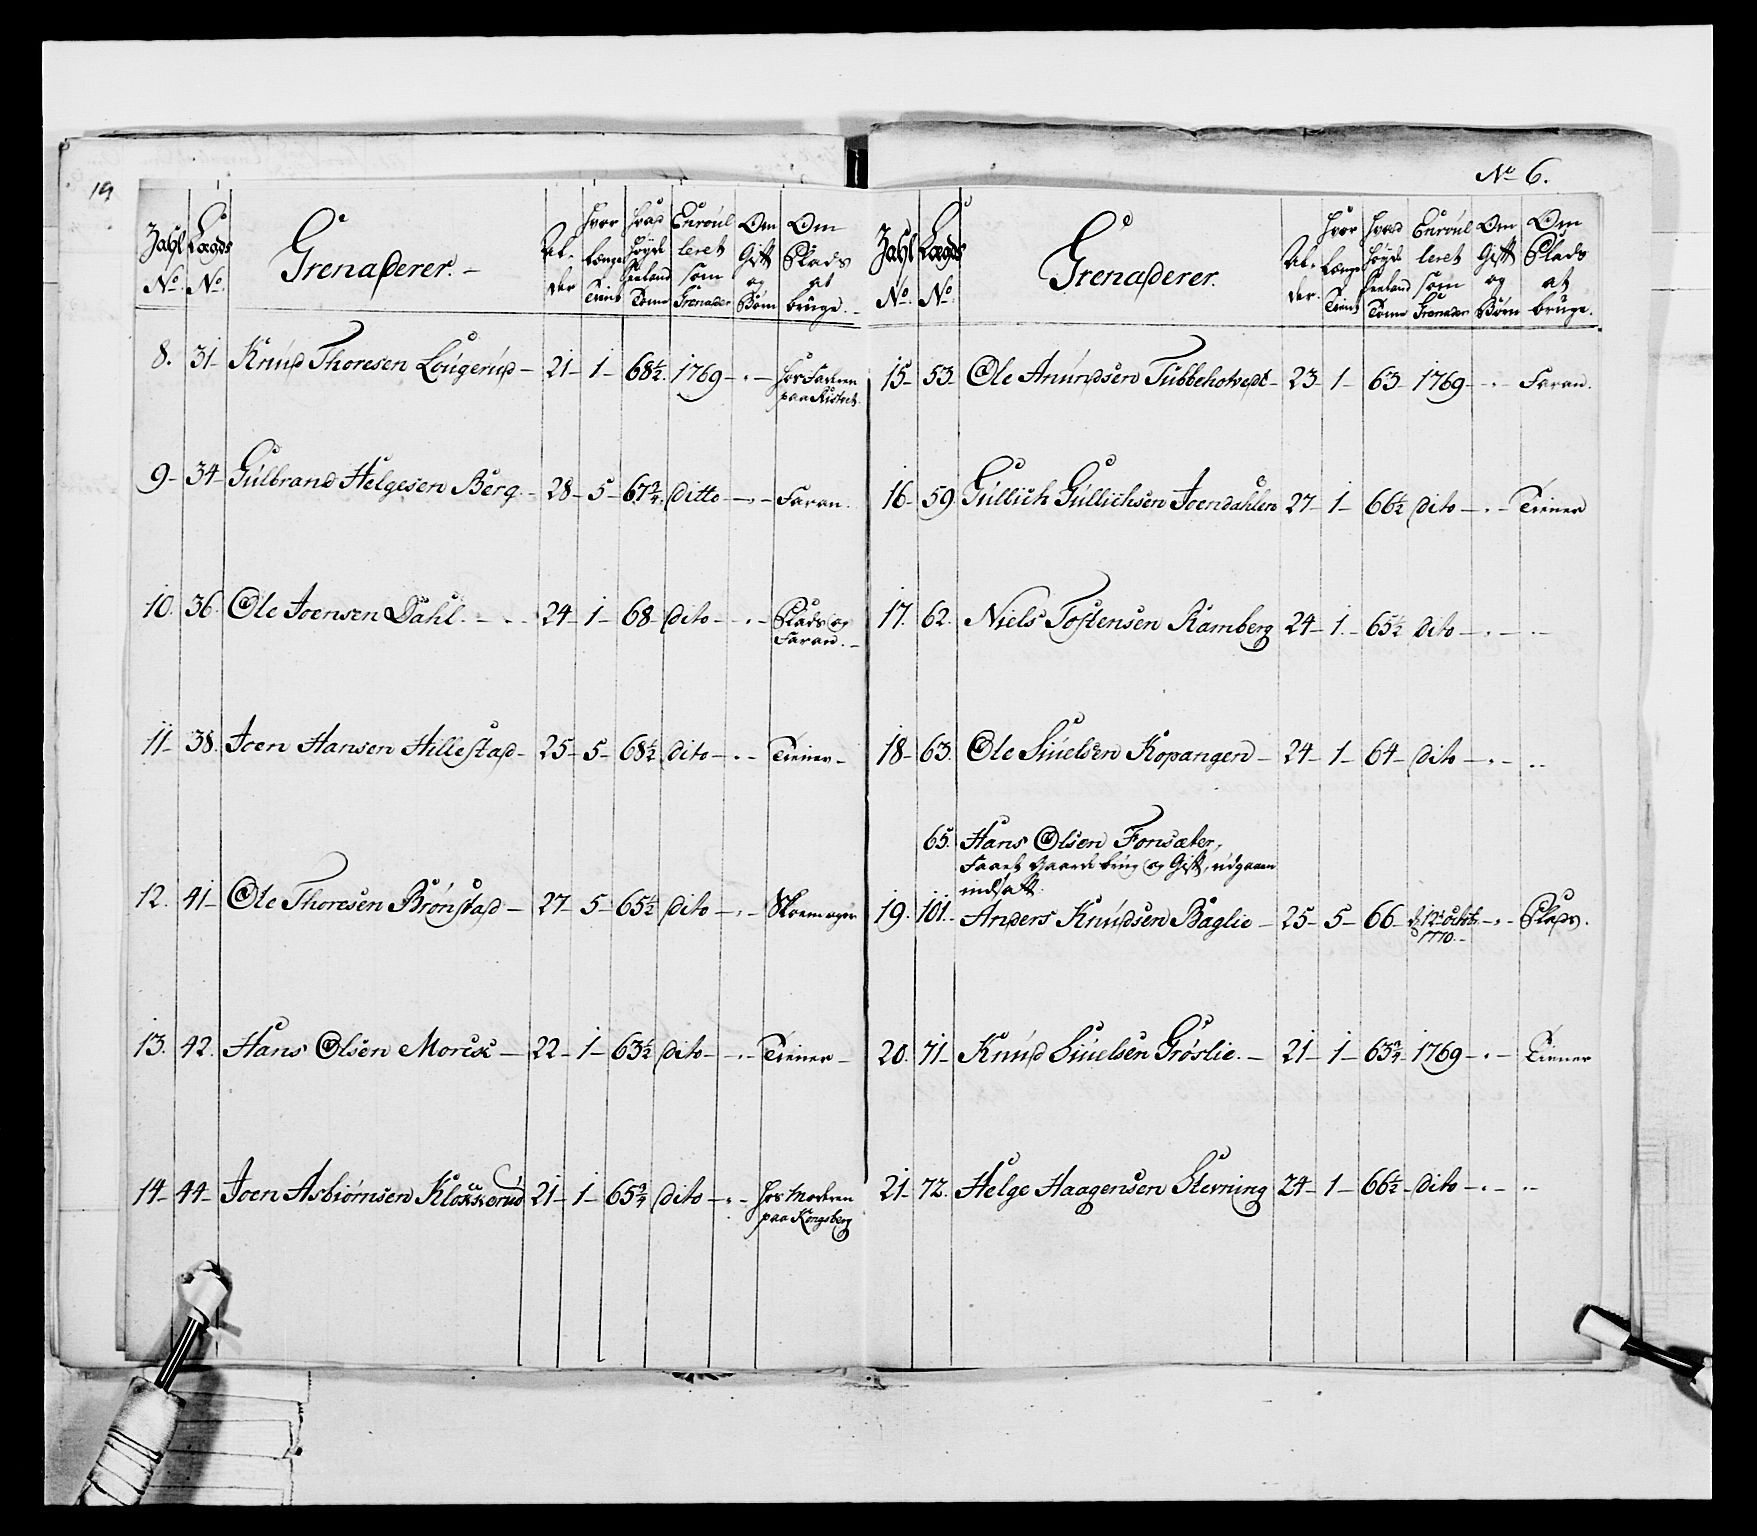 19
Zahl No. Lægds No. Grenaderer. Al-der Hvor Længe Tient Hvad Høyde Seeland Tomme Enroulleret som Grenader Om Gift og Børn Om Plads at bruge.
8. 31 Knud Thoresen Lougerud 21 1 68½ 1769 hos Faderen
paa
9 34 Gulbrand Helgesen Berg 28 5 67¾ Ditto Faran.
10. 36. Ole Joensen Dahl 24 1 68 dito Plads og
Faran.
11 38. Joen Hansen Hillestad 25 5 68½ dito Tiener
12. 41 Ole Thoresen Brønstad 27 5 65½ dito Skoemager
13. 42. Hans Olsen Morcke 22 1 63½ dito Tiener
14 44 Joen Asbiørnsen Klokkerud 21 1 65¾ dito hos Moderen
paa Kongsberg
No 6.
Zahl No. Lægds No. Grenaderer. Al-der. Hvor Længe Tient Hvad Høyde Seeland Tomme Enroulleret som Grenader Om Gift og Børn Om Plads at bruge.
15 53. Ole Anundsen Tubbehotvedt 23 1 63 1769 Faran.
16 59. Gullich Gullichsen Joendahlen 27 1 66½ dito Tiener
17. 62. Niels Tostensen Ramberg 24 1 65½ dito
18 63. Ole Siuelsen Kopangen 24 1 64 dito
65. Hans Olsen Fonsæter,
Faaet Gaarde brug og Gift, udgaaen
indsatt.
19. 101. Anders Knudsen Baglie 25 5 66 d 12te Octob. Plads.
1770.
20. 71 Knud Siuelsen Grøslie 21 1 63¾ 1769 Tiener
21 72. Helge Haagensen Stevning 24 1 66½ dito